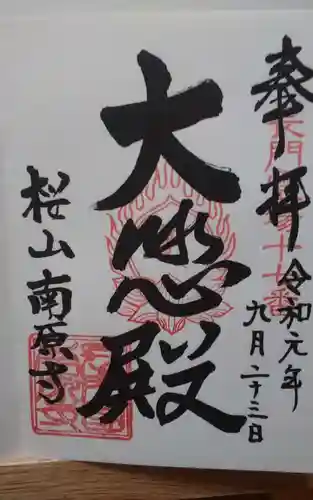 奉拝
長門
十七番
令和元年
九月二十三日
大悲殿
桜山南原寺